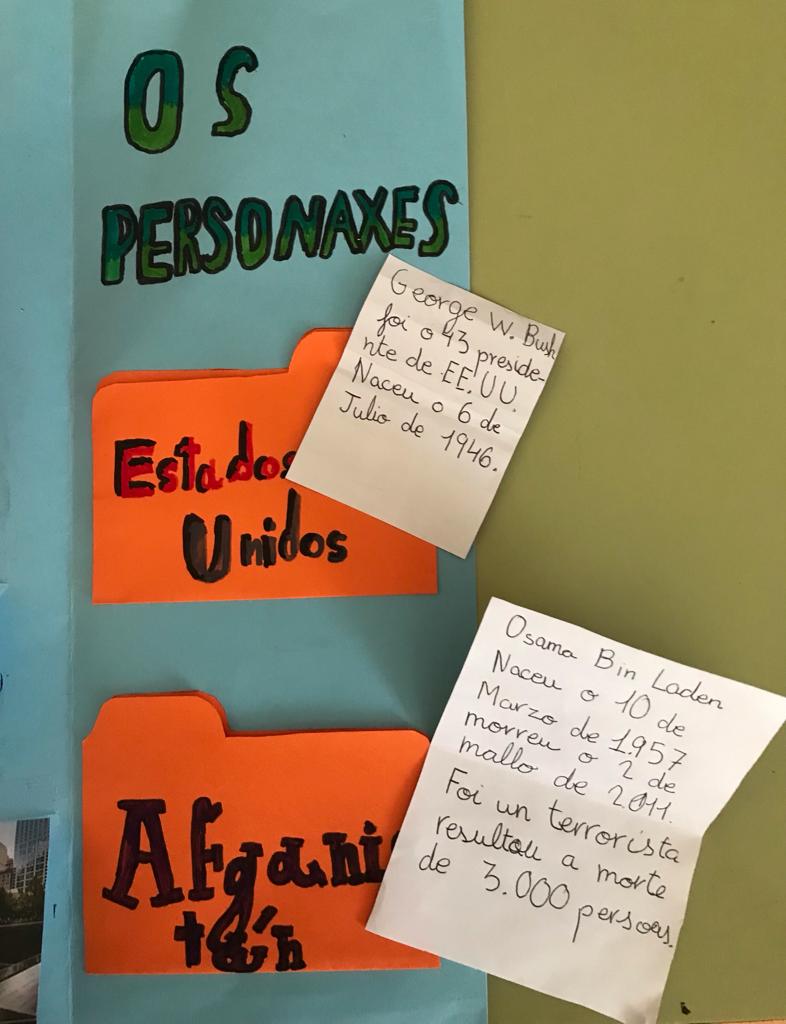 OS
PERSONAXES
George W. Bush
foi o 43 preside-
nte de EE.UU.
Naceu o 6 de
Julio de 1946.
Estados
Unidos
Osama Bin Laden
Naceu o 10 de
Marzo de 1957
morreu o 2 de
mallo de 2011.
Foi un terrorista
resultou a morte
de 3.000 persoas.
Afganis
tán